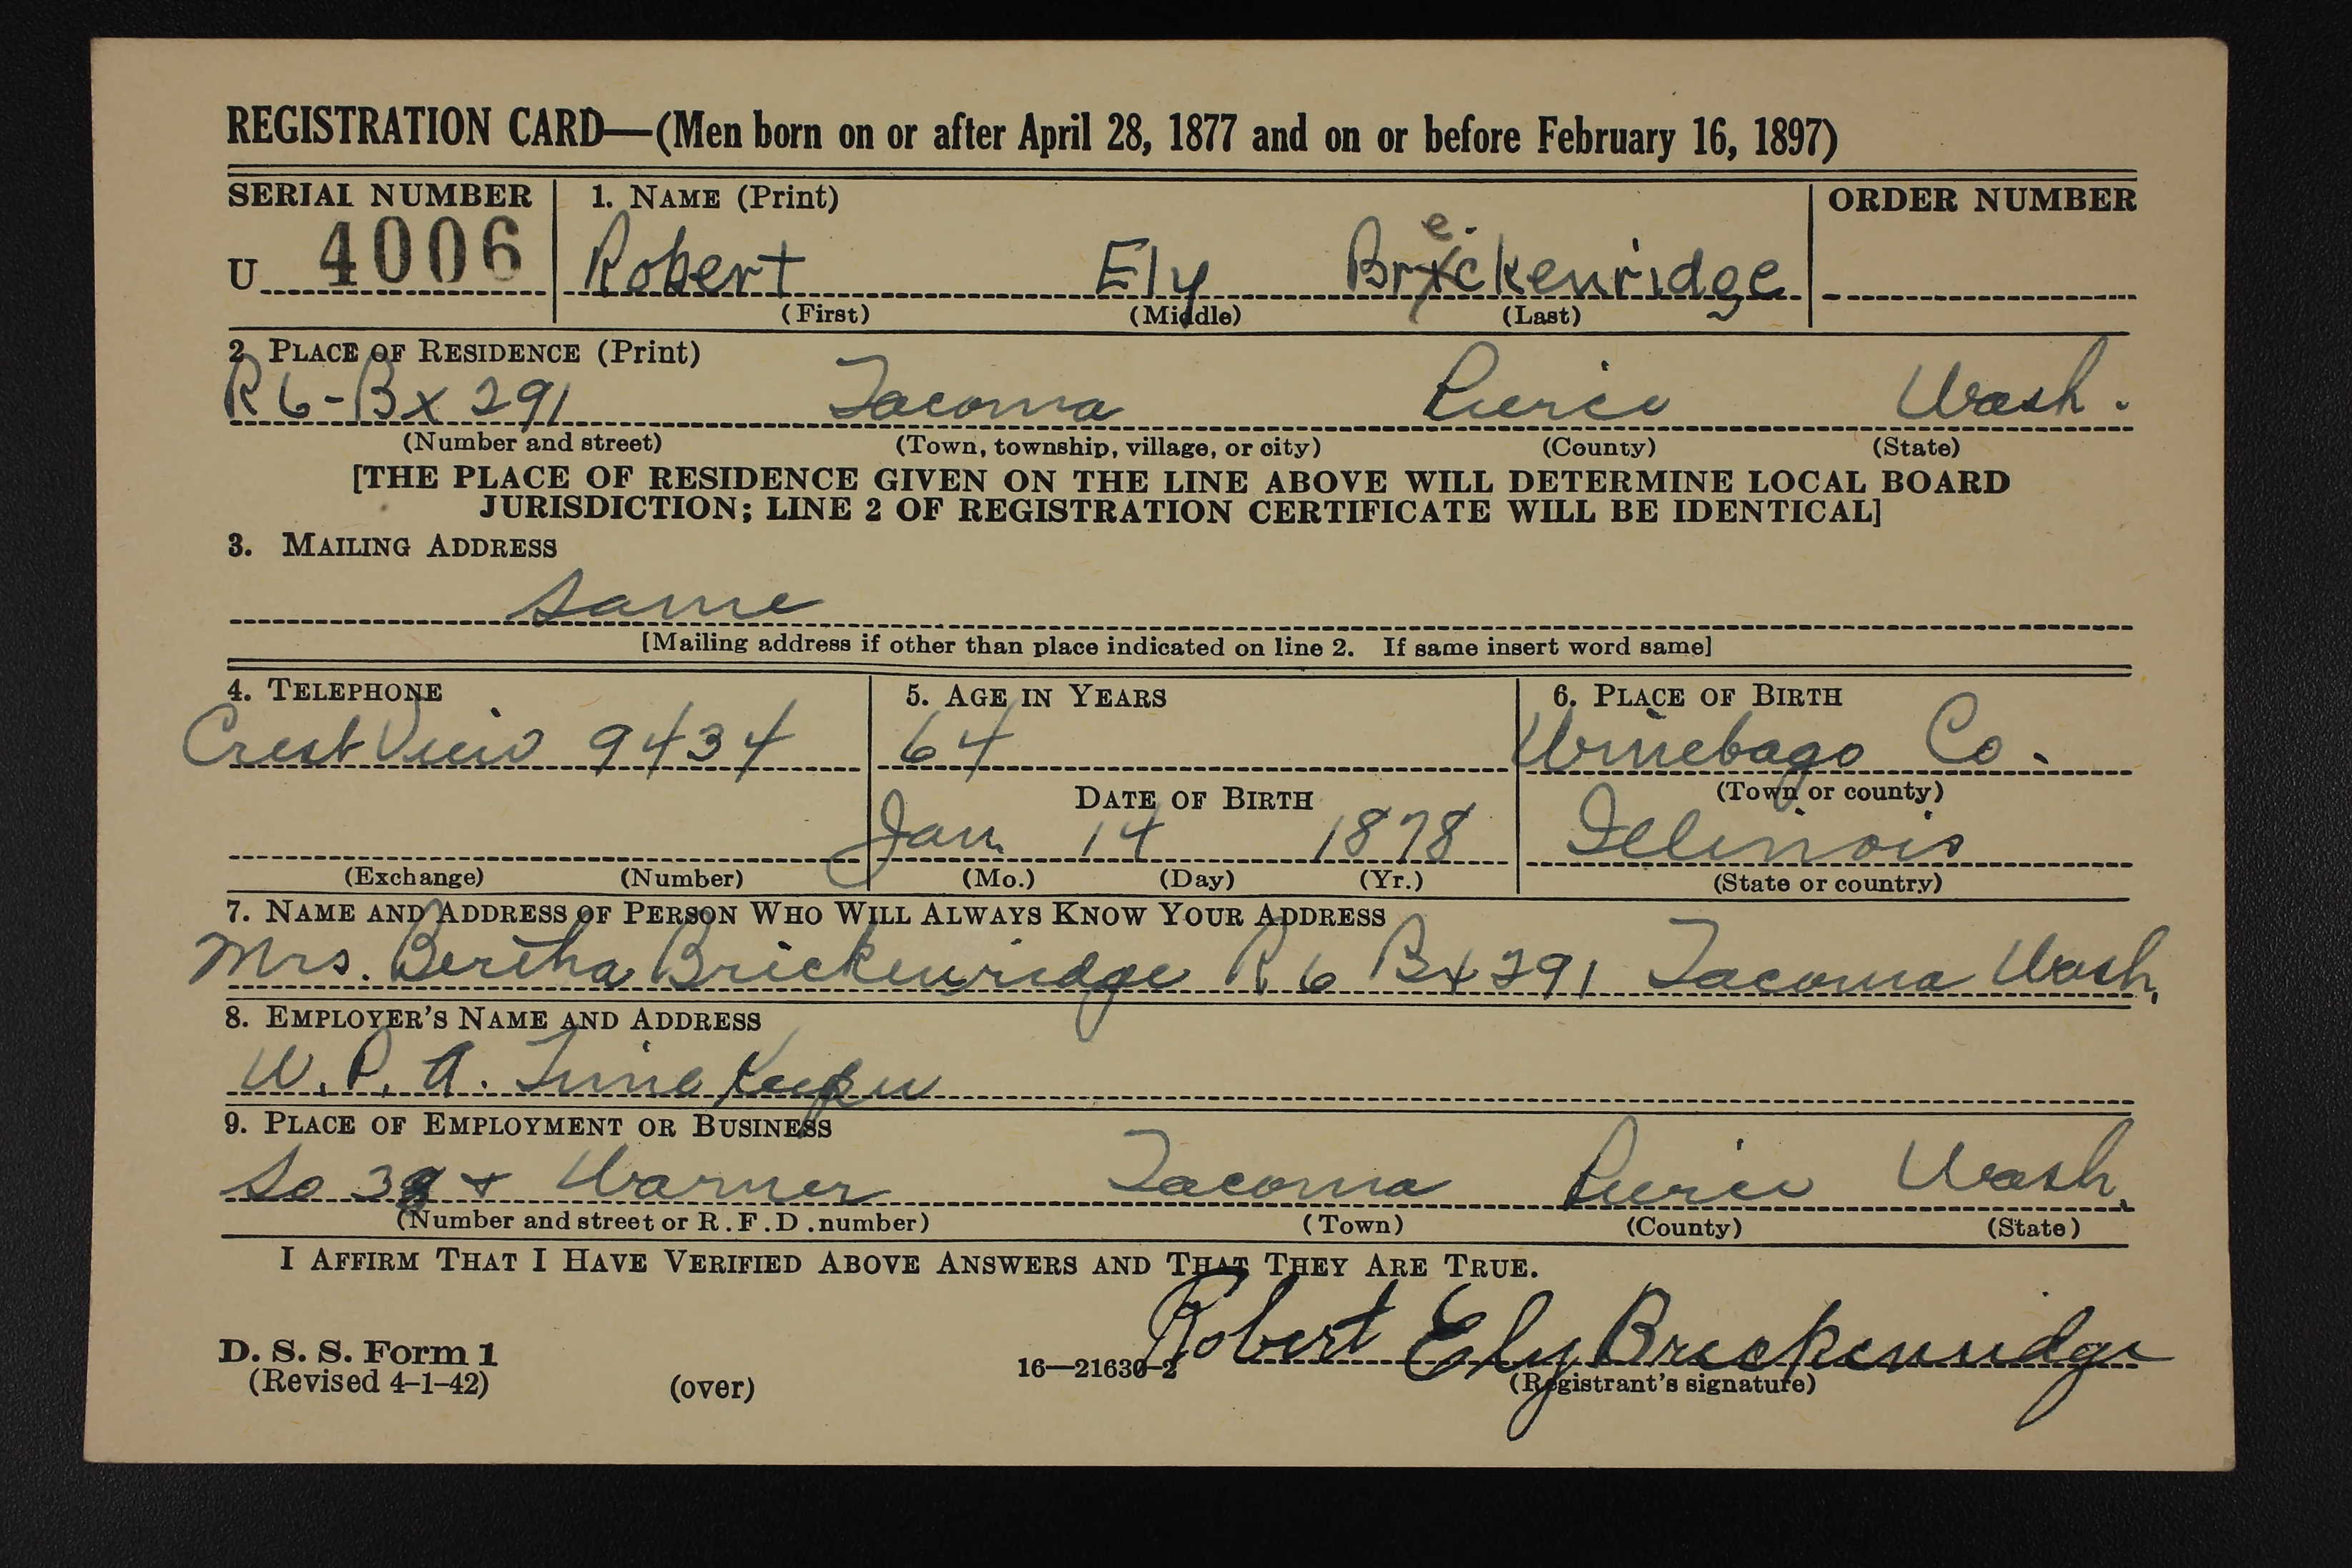 REGISTRATION CARD—(Men born on or after April 28, 1877 and on or before February 16, 1897)
SERIAL NUMBER 1. NAME (Print) ORDER NUMBER
e.
U 4006 Robert Ely Brickenridge
(First) (Middle) (Last)
2 PLACE OF RESIDENCE (Print)
R 6-Bx 291 Tacoma Pierce Wash.
(Number and street) (Town, township, village, or city) (County) (State)
[THE PLACE OF RESIDENCE GIVEN ON THE LINE ABOVE WILL DETERMINE LOCAL BOARD
JURISDICTION; LINE 2 OF REGISTRATION CERTIFICATE WILL BE IDENTICAL]
3. MAILING ADDRESS
Same
[Mailing address if other than place indicated on line 2. If same insert word same]
4. TELEPHONE 5. AGE IN YEARS 6. PLACE OF BIRTH
Crest View 9434 64 Winebago Co.
DATE OF BIRTH (Town or county)
Jan. 14 1878 Illinois
(Exchange) (Number) (Mo.) (Day) (Yr.) (State or country)
7. NAME AND ADDRESS OF PERSON WHO WILL ALWAYS KNOW YOUR ADDRESS
Mrs. Bertha Brickenridge R 6 Bx 291 Tacoma Wash.
8. EMPLOYER'S NAME AND ADDRESS
W. P. A. Time Keeper
9. PLACE OF EMPLOYMENT OR BUSINESS
So 38 + Warner Tacoma Pierce Wash.
(Number and street or R.F.D. number) (Town) (County) (State)
I AFFIRM THAT I HAVE VERIFIED ABOVE ANSWERS AND THAT THEY ARE TRUE.
Robert Ely Breckenridge
D. S. S. Form 1 16—21630-2 (Registrant's signature)
(Revised 4-1-42) (over)